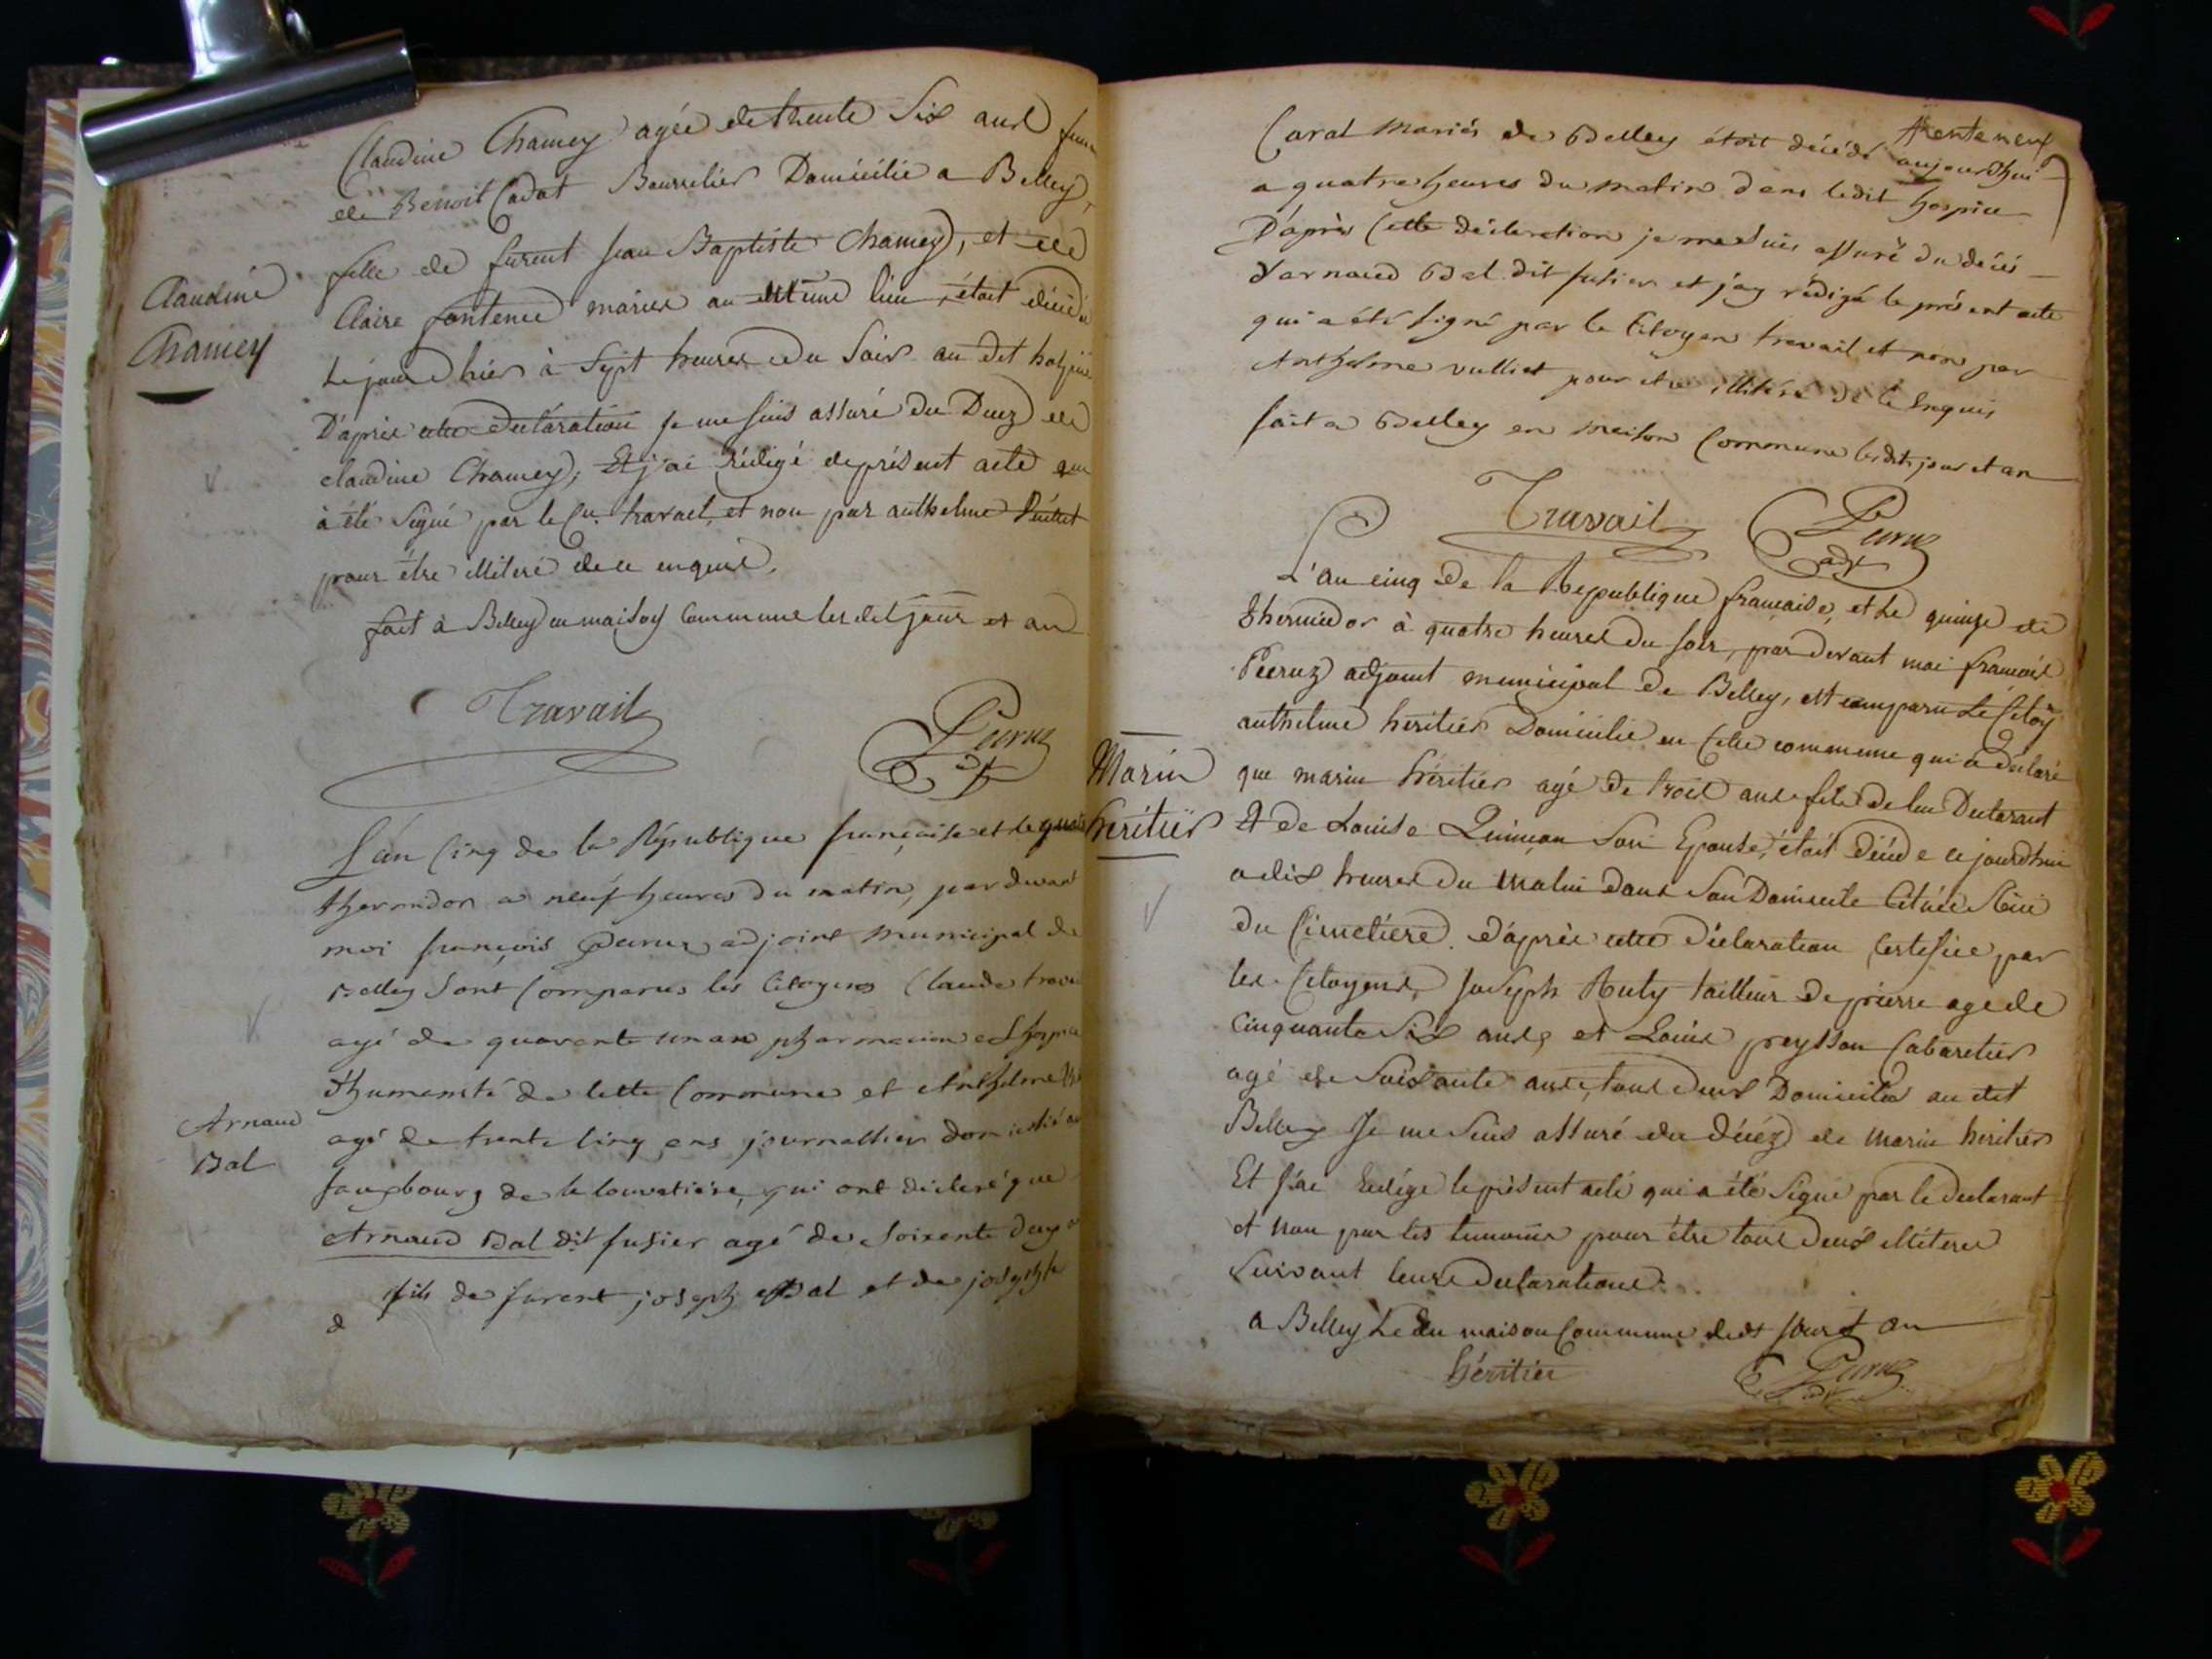 Claudine Chamey agée de trente Six ans femme
de Benoit Cadot Bourrelier Domicilié a Belley,
fille de furent Jean Baptiste Chamey, et de
Claudine
Chamey
Claire fontenu mariés au même lieu, était décédée
Le jour d'hier à Sept heures du Soir au dit hospice
D'après cette déclaration je me suis assuré du Decez de
claudine Chamey, Et j'ai rédigé le présent acte qui
à été Signé par le Cn. travail, et non par anthelme
pour être illiteré de ce enquis.
fait à Belley en maison Commune les dit jour et an
Travail
Peruz
adt
L'an Cinq de la République française et le
thermidor a neuf heures du matin, par devant
moi françois Peruz adjoint municipal de
Belley Sont Comparus les Citoyens Claude travail
agé de quarante un an pharmacien de L'hospice
d'humanité de cette Commune et Anthelme
Arnaud
Bal
agé de trente Cinq ans journallier domicilié au
fauxbourg de la louvatière, qui ont déclaré que
Arnaud Bal dit fusier agé de Soixente deux
fils de furent joseph Bal et de josephte
Carat mariés de Belley étoit décédé aujourdhui
trente neuf
a quatre heures du matin dans ledit hospice
D'après Cette déclaration je me Suis assuré du décès
d'arnaud Bal dit fusier et j'ay rédigé le présent acte
qui a été signé par le Citoyen travail et non par
Anthelme vulliet pour etre illitéré de Ce Enquis
fait a Belley en maison Commune lesdits jour et an
Travail
Peruz
adt
L'an cinq de la République française, et le quinze de
thermidor à quatre heures du soir, par devant moi françois
Peeruz adjoint municipal de Belley, est comparu Le Citoyn
anthelme heritier Domicilié en Cette commune qui a déclaré
Marin
heritier
que marin héritier agé de trois ans fils de lui Declarant
Et de Louise Quinson Son Epouse, était décédé ce jourdhui
a dix heures du matin dans Son Domicile Situé Rüe
du Cimetière. D'après cette déclaration Certifiée par
les Citoyens Joseph Ruty tailleur de pierre age de
Cinquante Six ans, et Louis peysson Cabaretier
agé de Soixante ans, tous deux Domiciliés au dit
Belley Je me Suis assuré du décéz de marin heritier
Et J'ai redigé le présent acte qui a été Signé par le declarant
et non par les temoins pour être tous deux illiterés
Suivant leurs declarations.
a Belley Le En maison Commune Ledt Jour et an
héritier
Peruz
adt